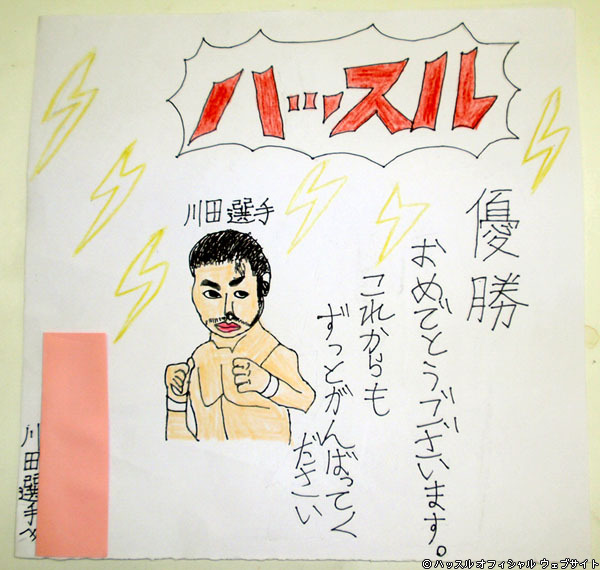 ハッスル
川田選手
優勝
おめでとうございます。
これからも
ずっとがんばってく
ださい
川田選手へ
© ハッスル オフィシャル ウェブサイト